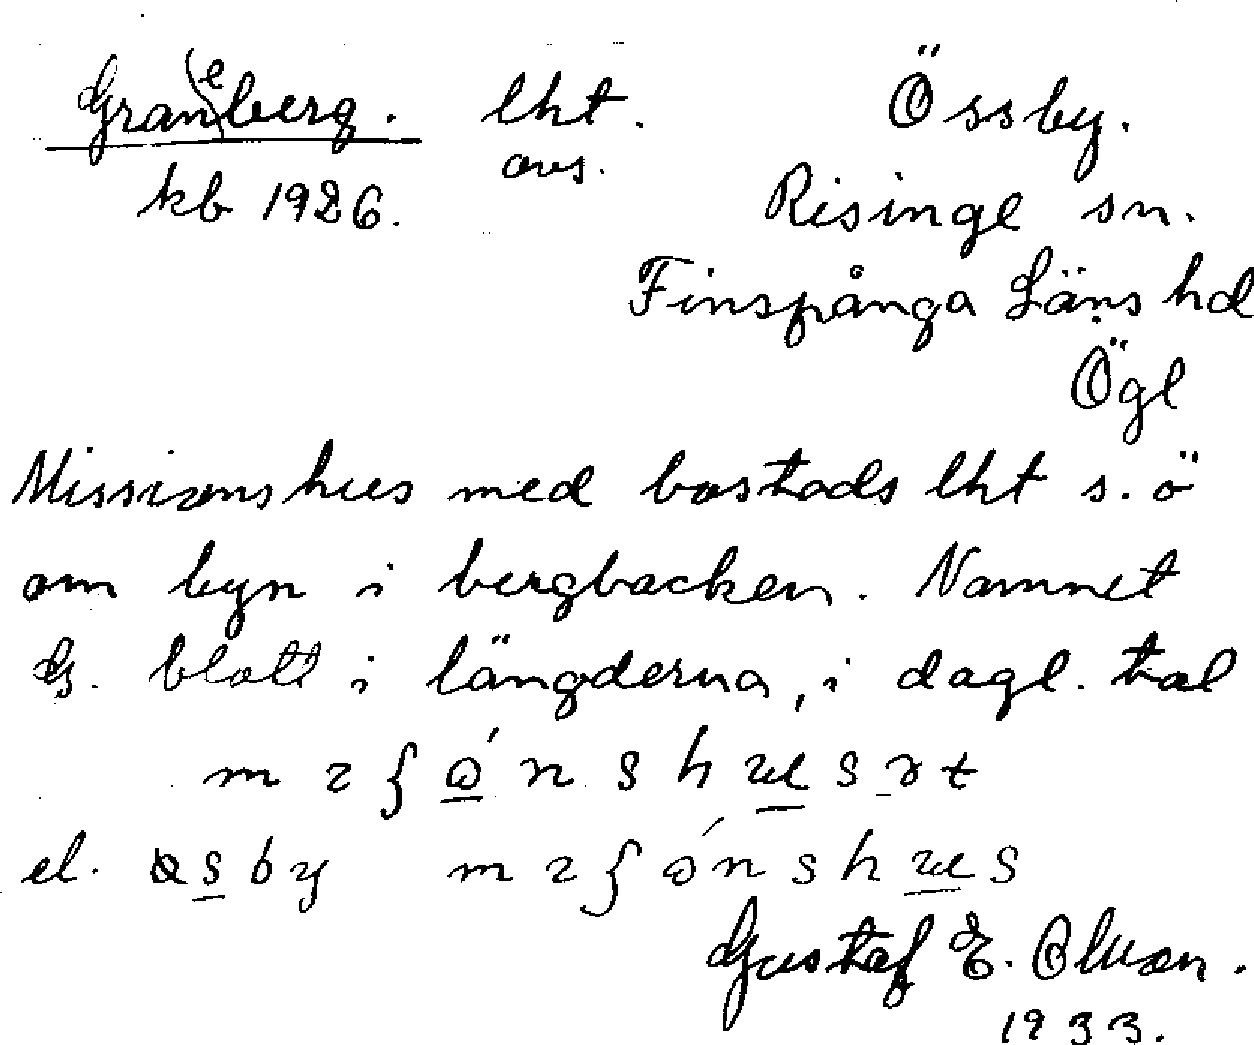 Gran(e)berg. lht. Össby.
avs.
kb 1926. Risinge sn.
Finspånga Läns hd
Ögl
Missionshus med bostads lht s.ö
om byn i bergbacken. Namnet
G. blott i längderna, i dagl. tal
el.
Gustaf E. Olsson.
1933.